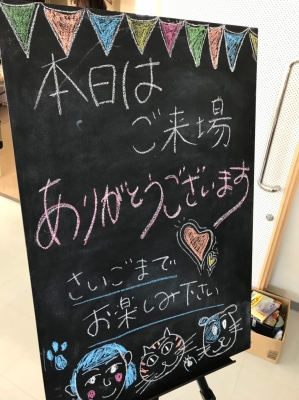 本日は
ご来場
ありがとうございます
さいごまで
お楽しみ下さい